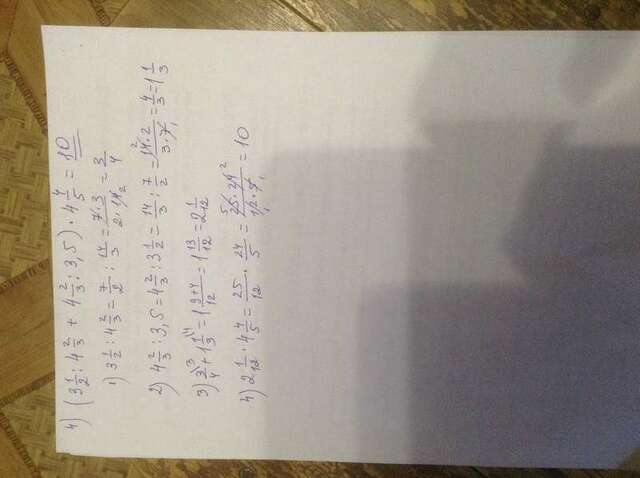 4) (3 1/2 : 4 2/3 + 4 2/3 : 3,5) · 4 4/5 = 10
1) 3 1/2 : 4 2/3 = 7/2 : 14/3 = 7·3/2·14 2 = 3/4
2) 4 2/3 : 3,5 = 4 2/3 : 3 1/2 = 14/3 : 7/2 = 14 2·2/3·7 1 = 4/3 = 1 1/3
3) 3/4 3 + 1 1/3 4 = 1 9+4/12 = 1 13/12 = 2 1/12
4) 2 1/12 · 4 4/5 = 25/12 · 24/5 = 5 25·24 2/12 1·5 1 = 10